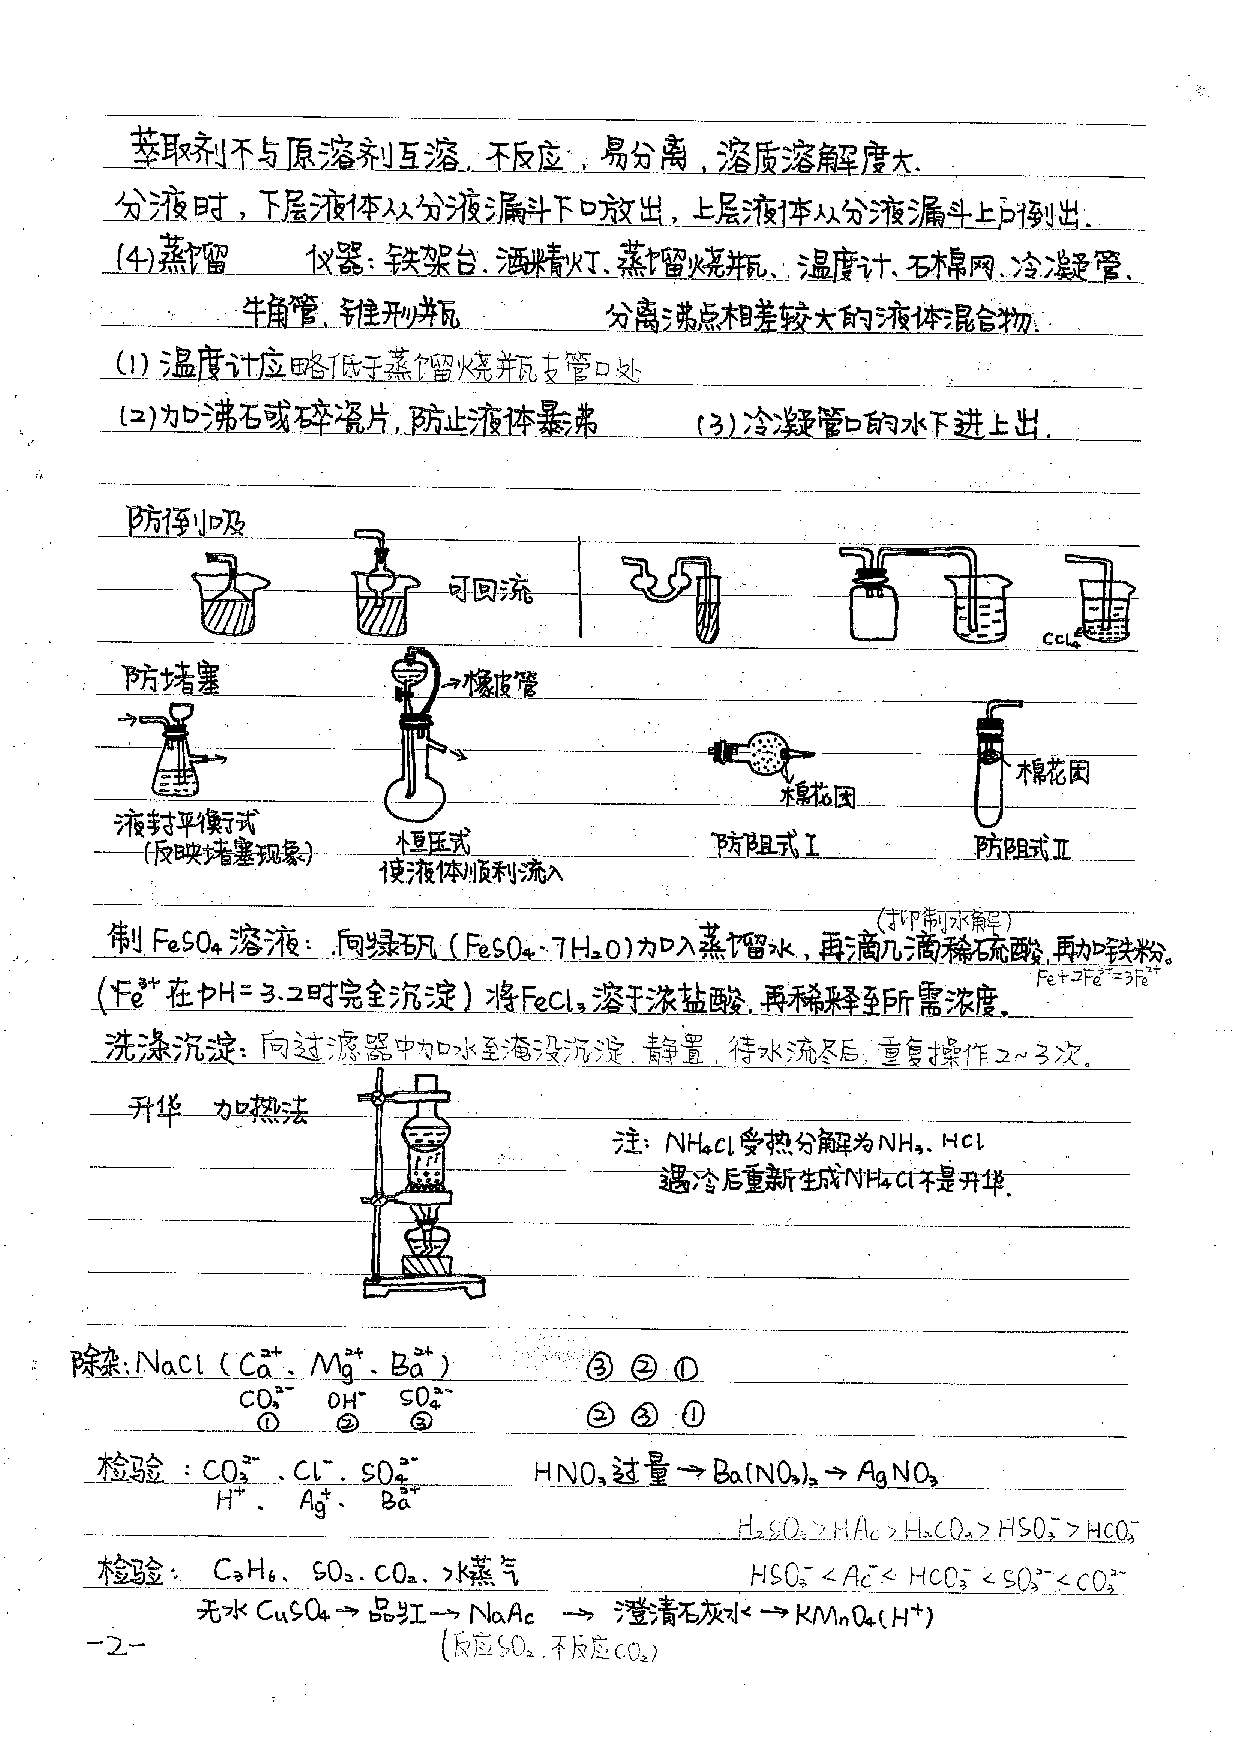 萃取剂不与原溶剂互溶、不反应,易分离,溶质溶解度大.
分液时,下层液体从分液漏斗下口放出,上层液体从分液漏斗上口倒出.
(4)蒸馏 仪器:铁架台、酒精灯、蒸馏烧瓶、温度计、石棉网、冷凝管、
牛角管、锥形瓶 分离沸点相差较大的液体混合物.
(1)温度计应略低于蒸馏烧瓶支管口处
(2)加沸石或碎瓷片,防止液体暴沸 (3)冷凝管口的水下进上出.
防倒吸
可回流
CCl₄
防堵塞
→橡皮管
棉花团
棉花团
液封平衡式
(反映堵塞现象)
恒压式
使液体顺利流入
防阻式Ⅰ
防阻式Ⅱ
(抑制水解)
制FeSO₄溶液:向绿矾(FeSO₄·7H₂O)加入蒸馏水,再滴几滴稀硫酸,再加铁粉。
Fe+2Fe³⁺=3Fe²⁺
(Fe³⁺在pH=3.2时完全沉淀)将FeCl₃溶于浓盐酸,再稀释至所需浓度。
洗涤沉淀:向过滤器中加水至淹没沉淀,静置,待水流尽后,重复操作2~3次。
升华 加热法
注:NH₄Cl受热分解为NH₃、HCl
遇冷后重新生成NH₄Cl不是升华.
除杂:NaCl(Ca²⁺、Mg²⁺、Ba²⁺) ③②①
CO₃²⁻ OH⁻ SO₄²⁻
① ② ③ ②③①
检验:CO₃²⁻、Cl⁻、SO₄²⁻ HNO₃过量→Ba(NO₃)₂→AgNO₃
H⁺、Ag⁺、Ba²⁺
H₂SO₃>HAc>H₂CO₃>HSO₃⁻>HCO₃⁻
检验:C₃H₆、SO₂、CO₂、水蒸气 HSO₃⁻<Ac⁻<HCO₃⁻<SO₃²⁻<CO₃²⁻
无水CuSO₄→品红→NaAc→澄清石灰水→KMnO₄(H⁺)
-2- (反应SO₂,不反应CO₂)